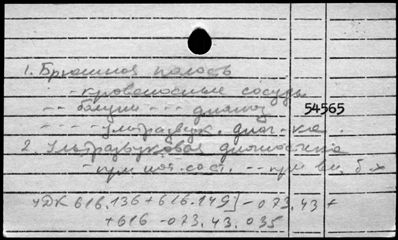 1. Брюшная полость
- кровеносные сосуды
-- -- диагн
54565
-- -- ультразвук. диаг-ка.
2. Ультразвуковая диагностика
- при -- при вн. б-х
УДК 616.136+616.149]-073.43+
+616-073.43.035